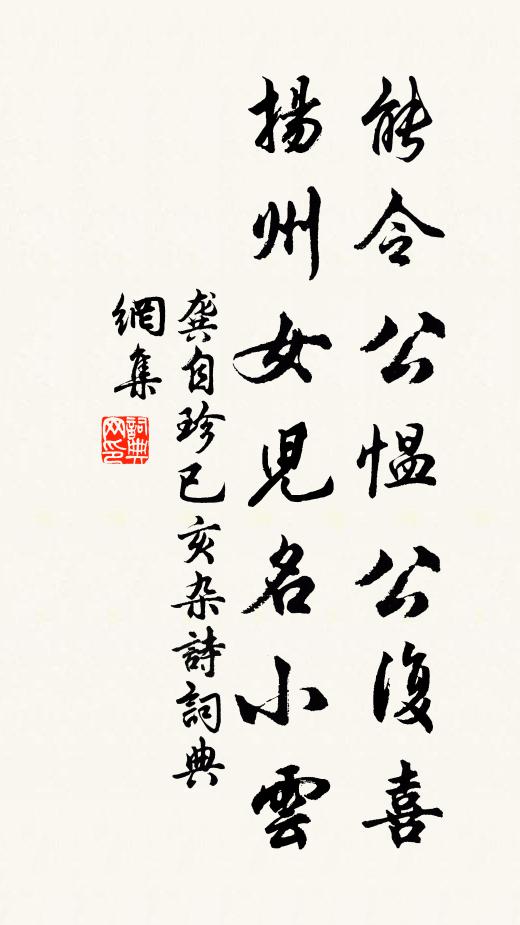 能令公愠公復喜
揚州女兒名小雲
龔自珍己亥杂詩詞典
網集
詞典
网印